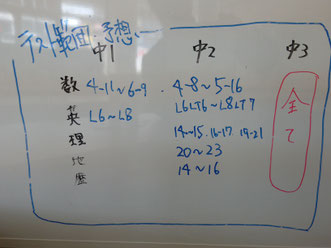 テスト範囲 予想
中1 中2 中3
数 4-11~6-9 4-8~5-16 全て
英 L6~L8 L6LT6~L8LT7
理 14~15. 16-17 19-21
地 20~23
歴 14~16